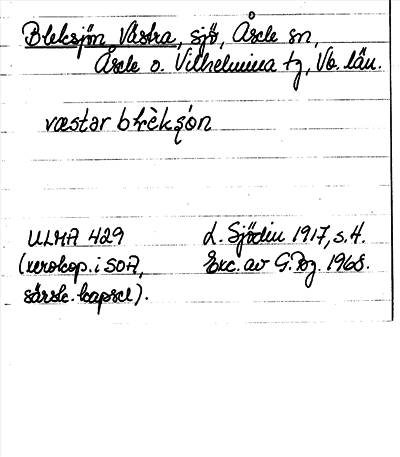 Bleksjön, Västra, sjö, Åsele sn,
Åsele o. Vilhelmina tg, Vb. län.
væstər blèkşón
ULMA 429 L. Sjödin 1917, s. 4.
(xerokop. i SOA, Exc. av G. Pg. 1968.
särsk. kapsel).